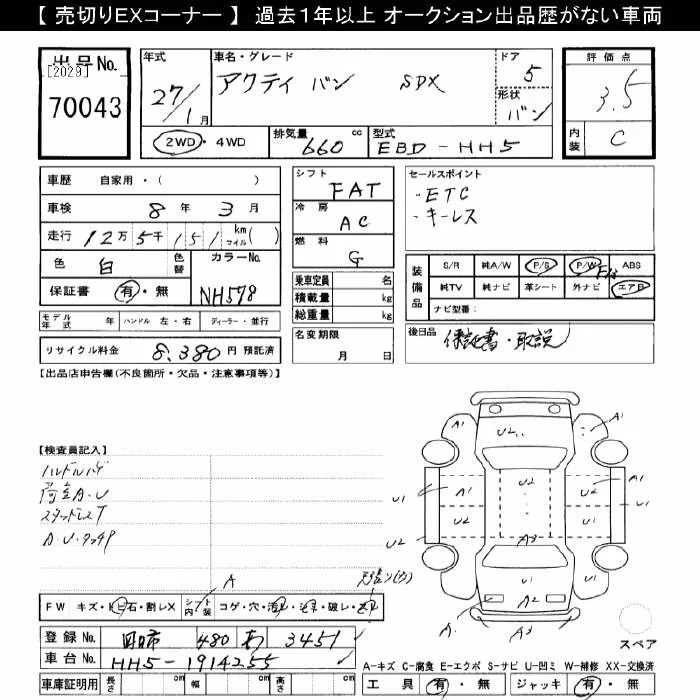 【 売切りEXコーナー 】 過去1年以上 オークション出品歴がない車両
出品No. [2029] 70043
年式 27/1月
車名・グレード アクティ バン SDX
ドア 5
形状 バン
評価点 3.5
内装 C
2WD・4WD
排気量 660 cc
型式 EBD-HH5
車歴 自家用・( )
車検 8年 3月
走行 12万 5千 151 km マイル( )
色 白 色替 カラーNo. NH578
保証書 有・無
モデル年式 年 ハンドル 左・右 ディーラー・並行
リサイクル料金 8,380円 預託済
シフト FAT
冷房 AC
燃料 G
乗車定員 名
積載量 kg
総重量 kg
名変期限 月 日
セールスポイント
・ETC
・キーレス
装備品 S/R 純A/W P/S P/W ABS
純TV 純ナビ 革シート 外ナビ エアB
ナビ型番:
後日品 保証書・取説
【出品店申告欄(不良箇所・欠品・注意事項等)】
【検査員記入】
荷室A・U
スタッドレスT
A・U・タッチP
A1 U2 A1
A1 U2 A1
U1 U1
U2 U2 U2 U2
A3
U1 U1 U1
A A2
スペア
FW キズ・トビ石・割レX シフト内装 A コゲ・穴・汚レ・シミ・破レ・スレ
登録No. 四日市 480 あ 3451
車台No. HH5-1914255
車庫証明用 長さ cm 幅 cm 高さ cm
A-キズ C-腐食 E-エクボ S-サビ U-凹ミ W-補修 XX-交換済
工具 有・無 ジャッキ 有・無